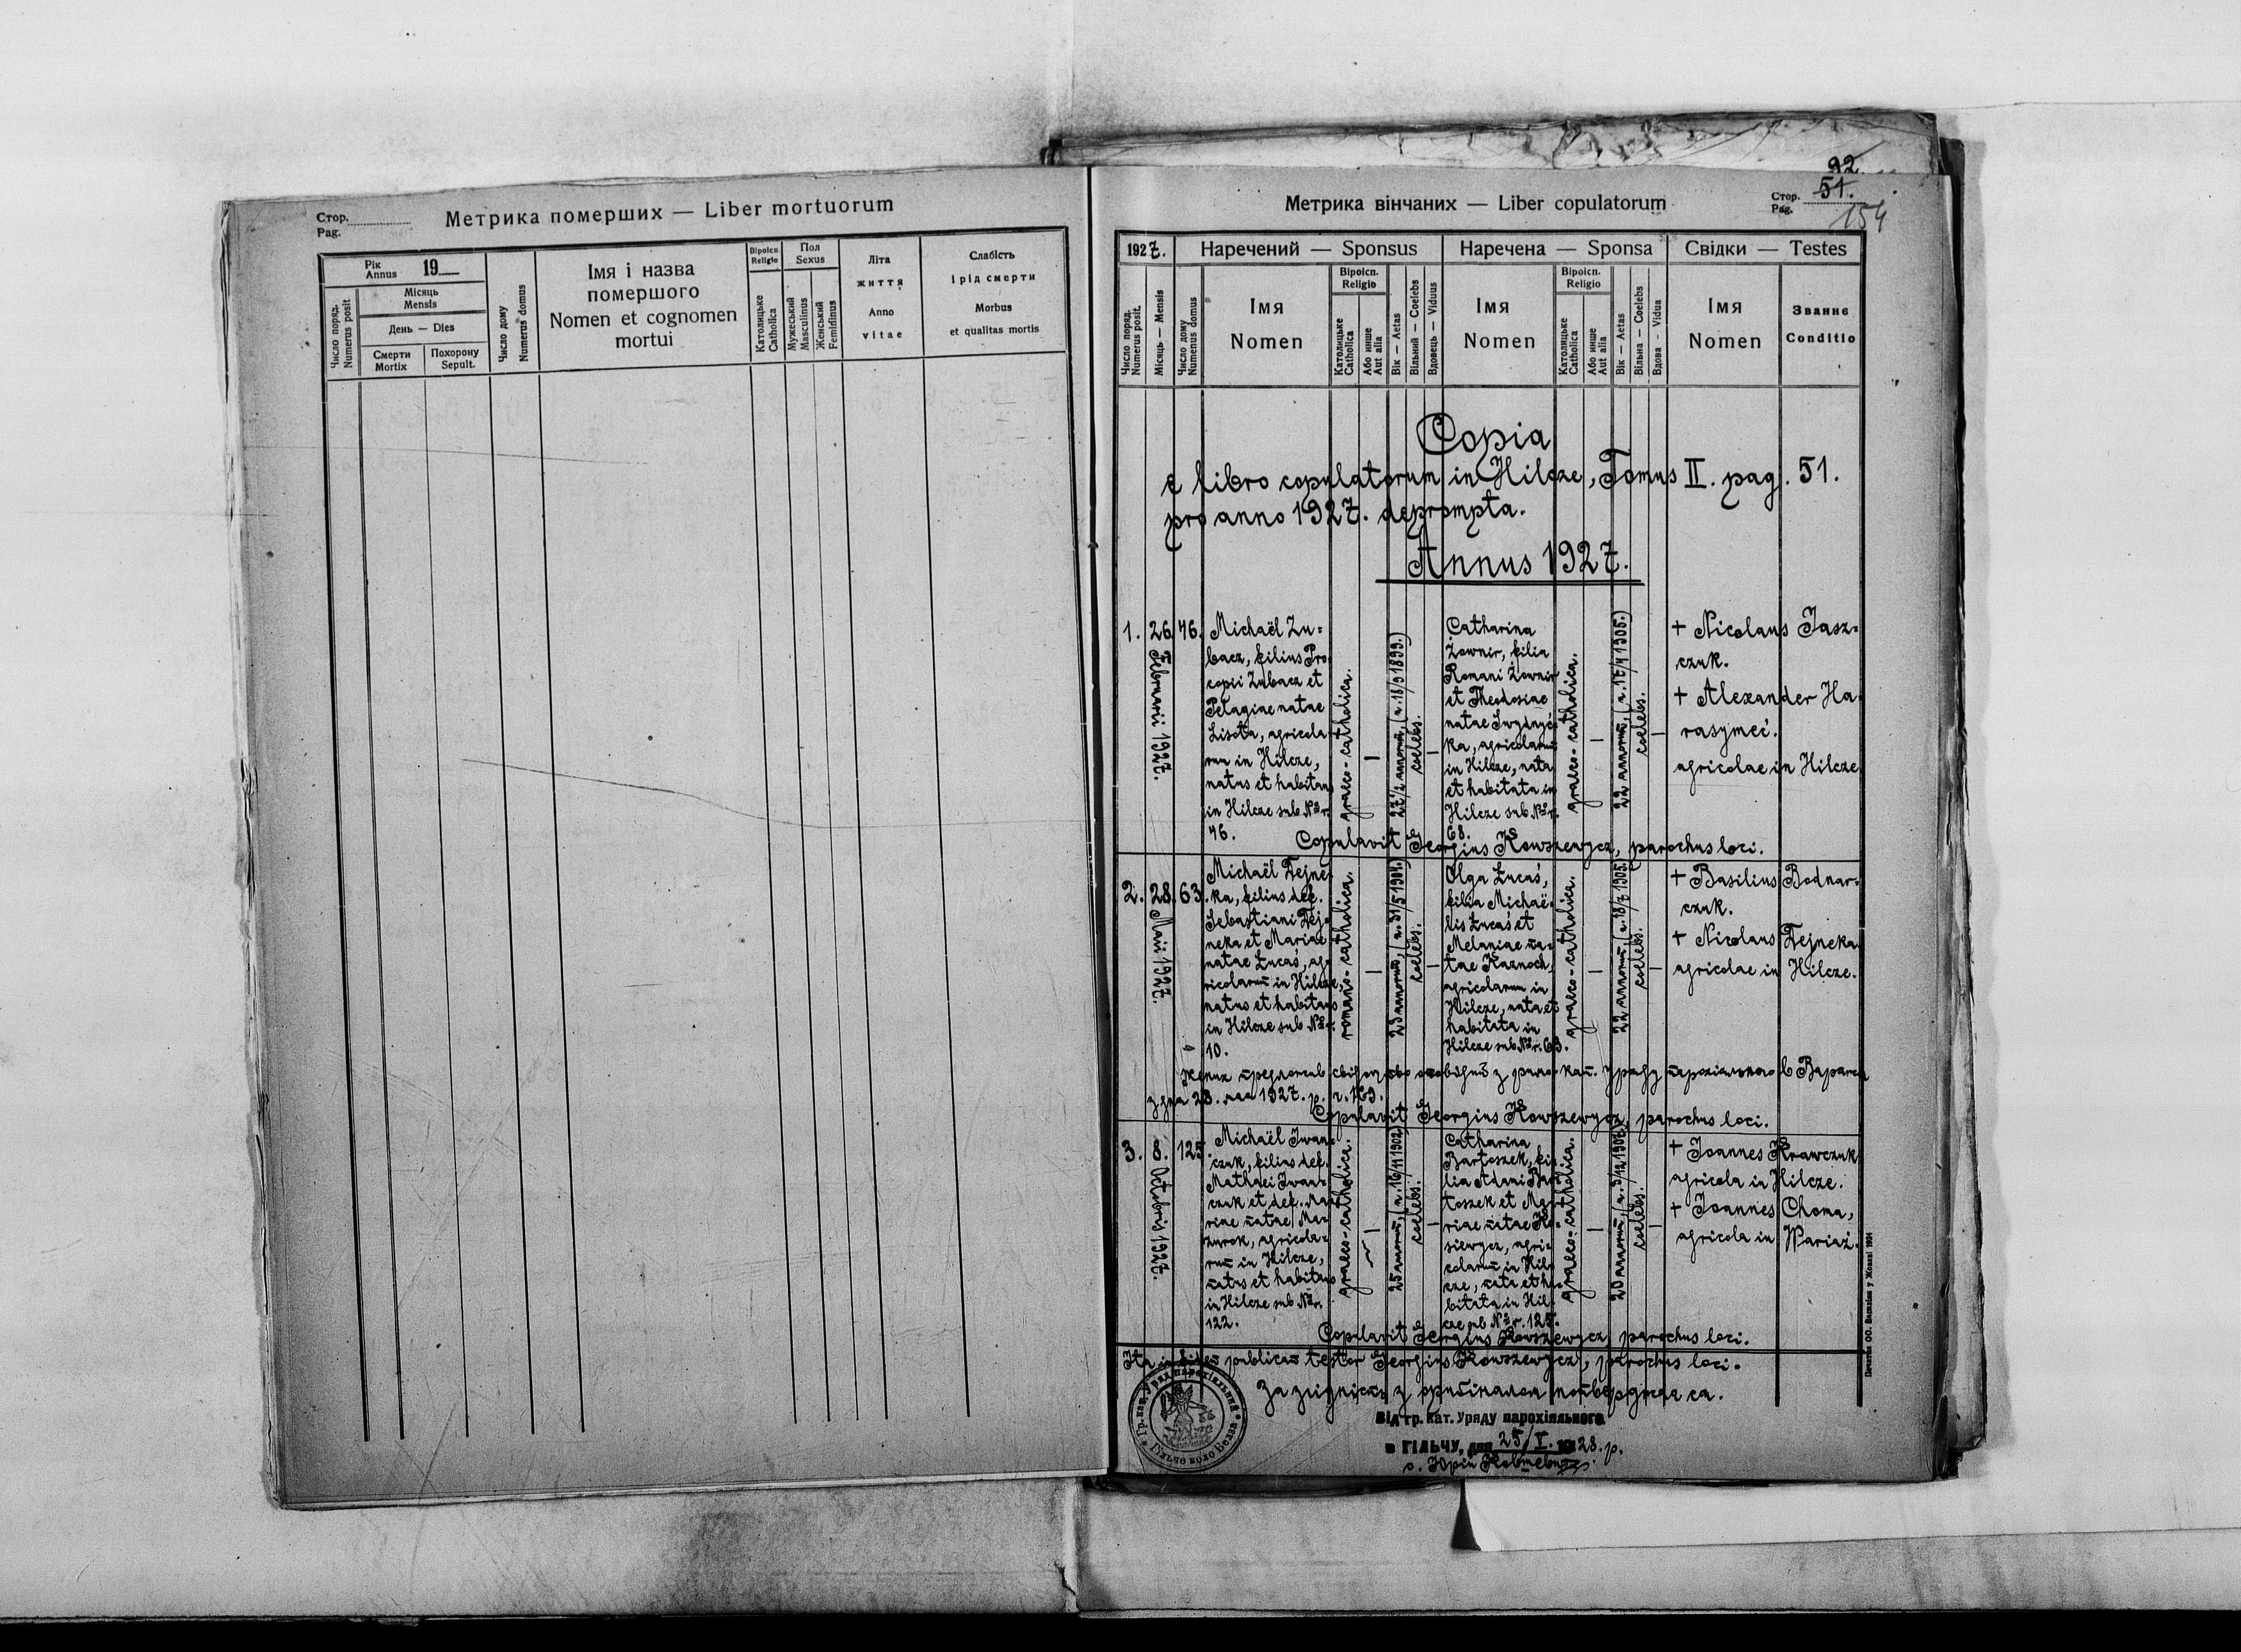 Стор.
Pag.
Метрика померших — Liber mortuorum
Рік
Annus 19
Місяць
Mensis
День — Dies
Число поряд.
Numerus posit
Смерти
Mortix
Похорону
Sepult.
Число дому
Numerus domus
Імя і назва
помершого
Nomen et cognomen
mortui
Віроісп.
Religio
Католицьке
Catholica
Пол
Sexus
Мужеський
Masculinus
Женський
Femininus
Літа
життя
Anno
vitae
Слабість
і рід смерти
Morbus
et qualitas mortis
Метрика вінчаних — Liber copulatorum
Стор.
Pag.
92.
51.
154
1927.
Наречений — Sponsus
Наречена — Sponsa
Свідки — Testes
Число поряд.
Numerus posit.
Місяць — Mensis
Число дому
Numenus domus
Імя
Nomen
Віроісп.
Religio
Католицьке
Catholica
Або инше
Aut alia
Вік — Aetas
Вільний — Coelebs
Вдовець — Viduus
Імя
Nomen
Віроісп.
Religio
Католицьке
Catholica
Або инше
Aut alia
Вік — Aetas
Вільна — Coelebs
Вдова — Vidua
Імя
Nomen
Званнє
Conditio
Copia
e libro copulatorum in Hilcze, Tomus II. pag. 51.
pro anno 1927. deprompta.
Annus 1927.
1.
26. Februarii 1927.
76.
Michaël Zu=
bacz, filius Pro
copii Zubacz et
Pelagiae natae
Lisota, agricola
rum in Hilcze,
natus et habitans
in Hilcze sub Nº r.
76.
graeco-catholica.
27½ annorum, (n. 18/9 1899.)
coelebs.
Catharina
Żownir, filia
Romani Żownir
et Theodosiae
natae
ka, agricolarum
in Hilcze, nata
et habitata in
Hilcze sub Nº r.
68.
graeco-catholica.
22 annorum, (n. 17/4 1905.)
coelebs.
+ Nicolaus Jasz=
czuk.
+ Alexander Ha
rasymeć.
agricolae in Hilcze
Copulavit Georgius Kowszewycz, parochus loci.
2.
28. Maii 1927.
63.
Michaël Tejne
ka, filius def.
Sebastiani Tej=
neka et Mariae
natae Łucaś, ag=
ricolarum in Hilcze,
natus et habitans
in Hilcze sub Nº r.
10.
romano-catholica.
23 annorum, (n. 31/5 1904.)
coelebs.
Olga Łucaś,
filia Michaë=
lis Łucaś et
Melaniae na=
tae Kaznoch,
agricolarum in
Hilcze, nata et
habitata in
Hilcze sub Nº r. 63.
graeco-catholica.
22 annorum, (n. 18/7 1905.)
coelebs.
+ Basilius Bodnar=
czuk.
+ Nicolaus Tejneka
agricolae in Hilcze.
з дня 28. мая 1927. р. ч. 169.
Copulavit Georgius Kowszewycz, parochus loci.
3.
8. Octobris 1927.
125.
Michaël Iwan=
czuk, filius def.
Mathaei Iwan=
czuk et def. Ma
riae natae Ma=
zurok, agricola=
rum in Hilcze,
natus et habitans
in Hilcze sub Nº r.
122.
graeco-catholica.
25 annorum, (n. 16/11 1902.)
coelebs.
Catharina
Bartoszek, fi=
lia Adami Bar
toszek et Ma=
riae natae
siewycz, agri=
colarum in Hil=
cze, nata et ha
bitata in Hil=
cze sub Nº r. 125.
graeco-catholica.
20 annorum,
coelebs.
+ Joannes Krawczuk
agricola in Hilcze.
+ Joannes Choma,
agricola in Wariaż.
Copulavit Georgius Kowszewycz, parochus loci.
Ita in fidem publicam testor Georgius Kowszewycz, parochus loci.
За згідність з оригіналом потверджає ся.
Від гр. кат. Уряду парохіяльного
в ГІЛЬЧУ, дня 25/I. 1928. р.
о. Юрій Ковшевич
Печатня ОО. Василіян у Жовкві 1924